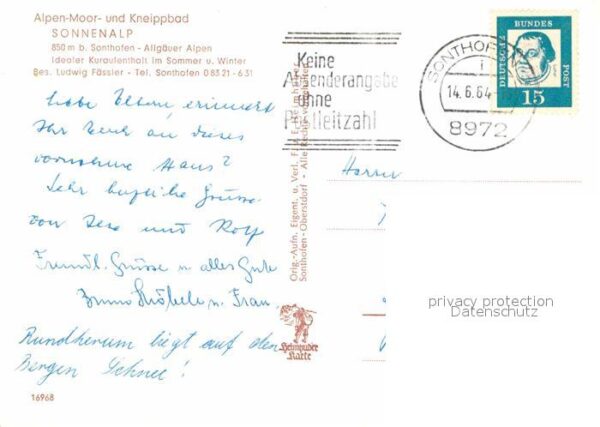 Alpen-Moor- und Kneippbad
SONNENALP
850 m b. Sonthofen - Allgäuer Alpen
Idealer Kuraufenthalt im Sommer u. Winter
Bes. Ludwig Fässler - Tel. Sonthofen 0 83 21 - 6 31
Liebe Eltern, erinnert
Ihr Euch an dieses
vornehme Haus?
Sehr herzliche Grüsse
von und Rolf
Freundl. Grüsse u. alles Gute
Bruno Ströbele u. Frau.
Rundherum liegt auf den
Bergen Schnee!
16968
Orig.-Aufn. Eigent. u. Verl.
Sonthofen-Oberstdorf - Alle Rechte vorbehalten
Heimhuber
Karte
Keine
Absenderangabe
ohne
Postleitzahl
SONTHOFEN
14.6.64
8972
DEUTSCHE
BUNDES
POST
15
Herrn
privacy protection
Datenschutz